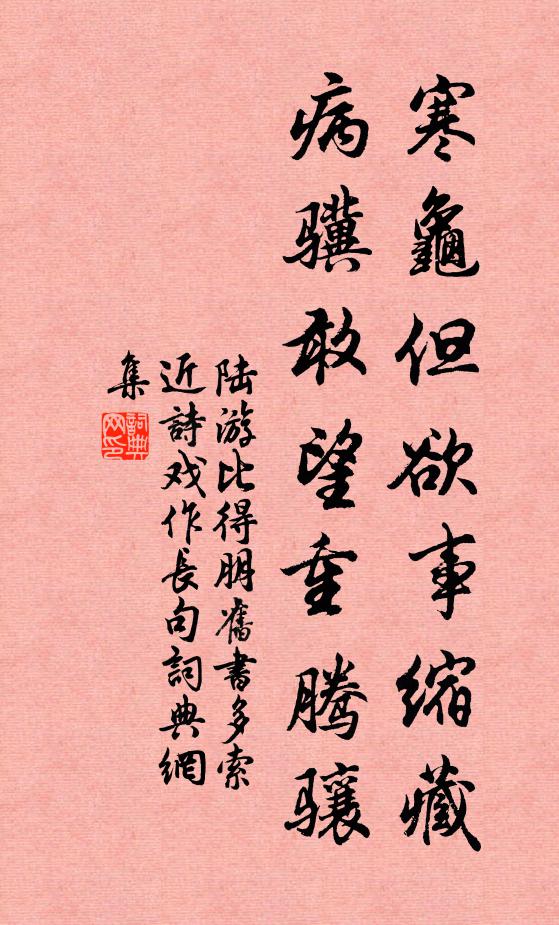 寒龜但欲事缩藏
病骥敢望重腾骧
陆游比得朋舊書多索
近詩戏作長句詞典網
集
詞典
网印